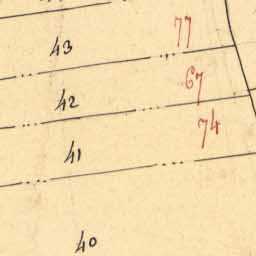 77
43
67
42
74
41
40